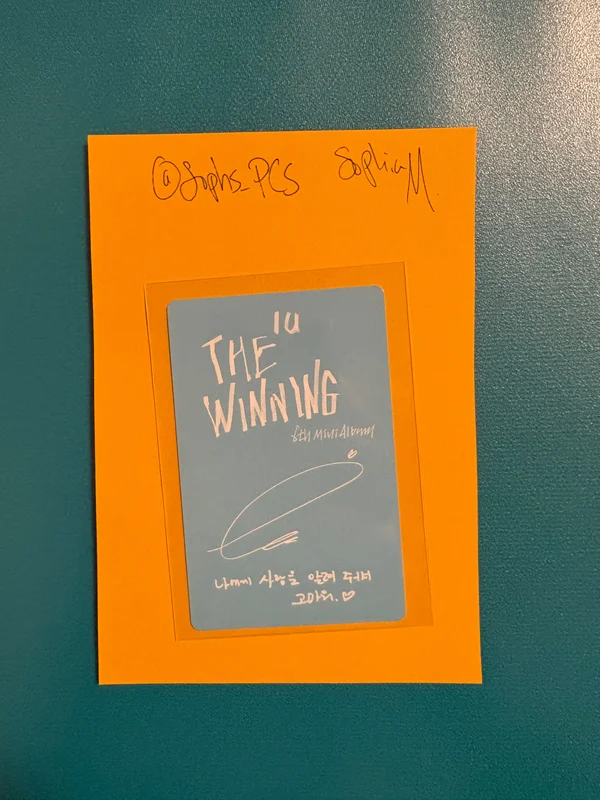 @Sophs_PCS Sophia M
IU
THE
WINNING
6th Mini Album
나에게 사랑을 알려 줘서
고마워.♡